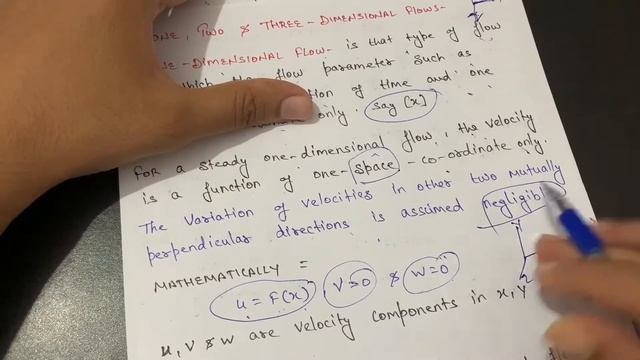 ONE, TWO & THREE-DIMENSIONAL FLOWS-
-DIMENSIONAL FLOW- is that type of flow
which the flow parameter such as
of time and one
only. say [x]
FOR a steady one-dimensional flow, the velocity
is a function of one-space-co-ordinate only.
The variation of velocities in other two mutually
perpendicular directions is assumed
MATHEMATICALLY =
u = f(x) & w=0
u, v & w are velocity components in x, Y